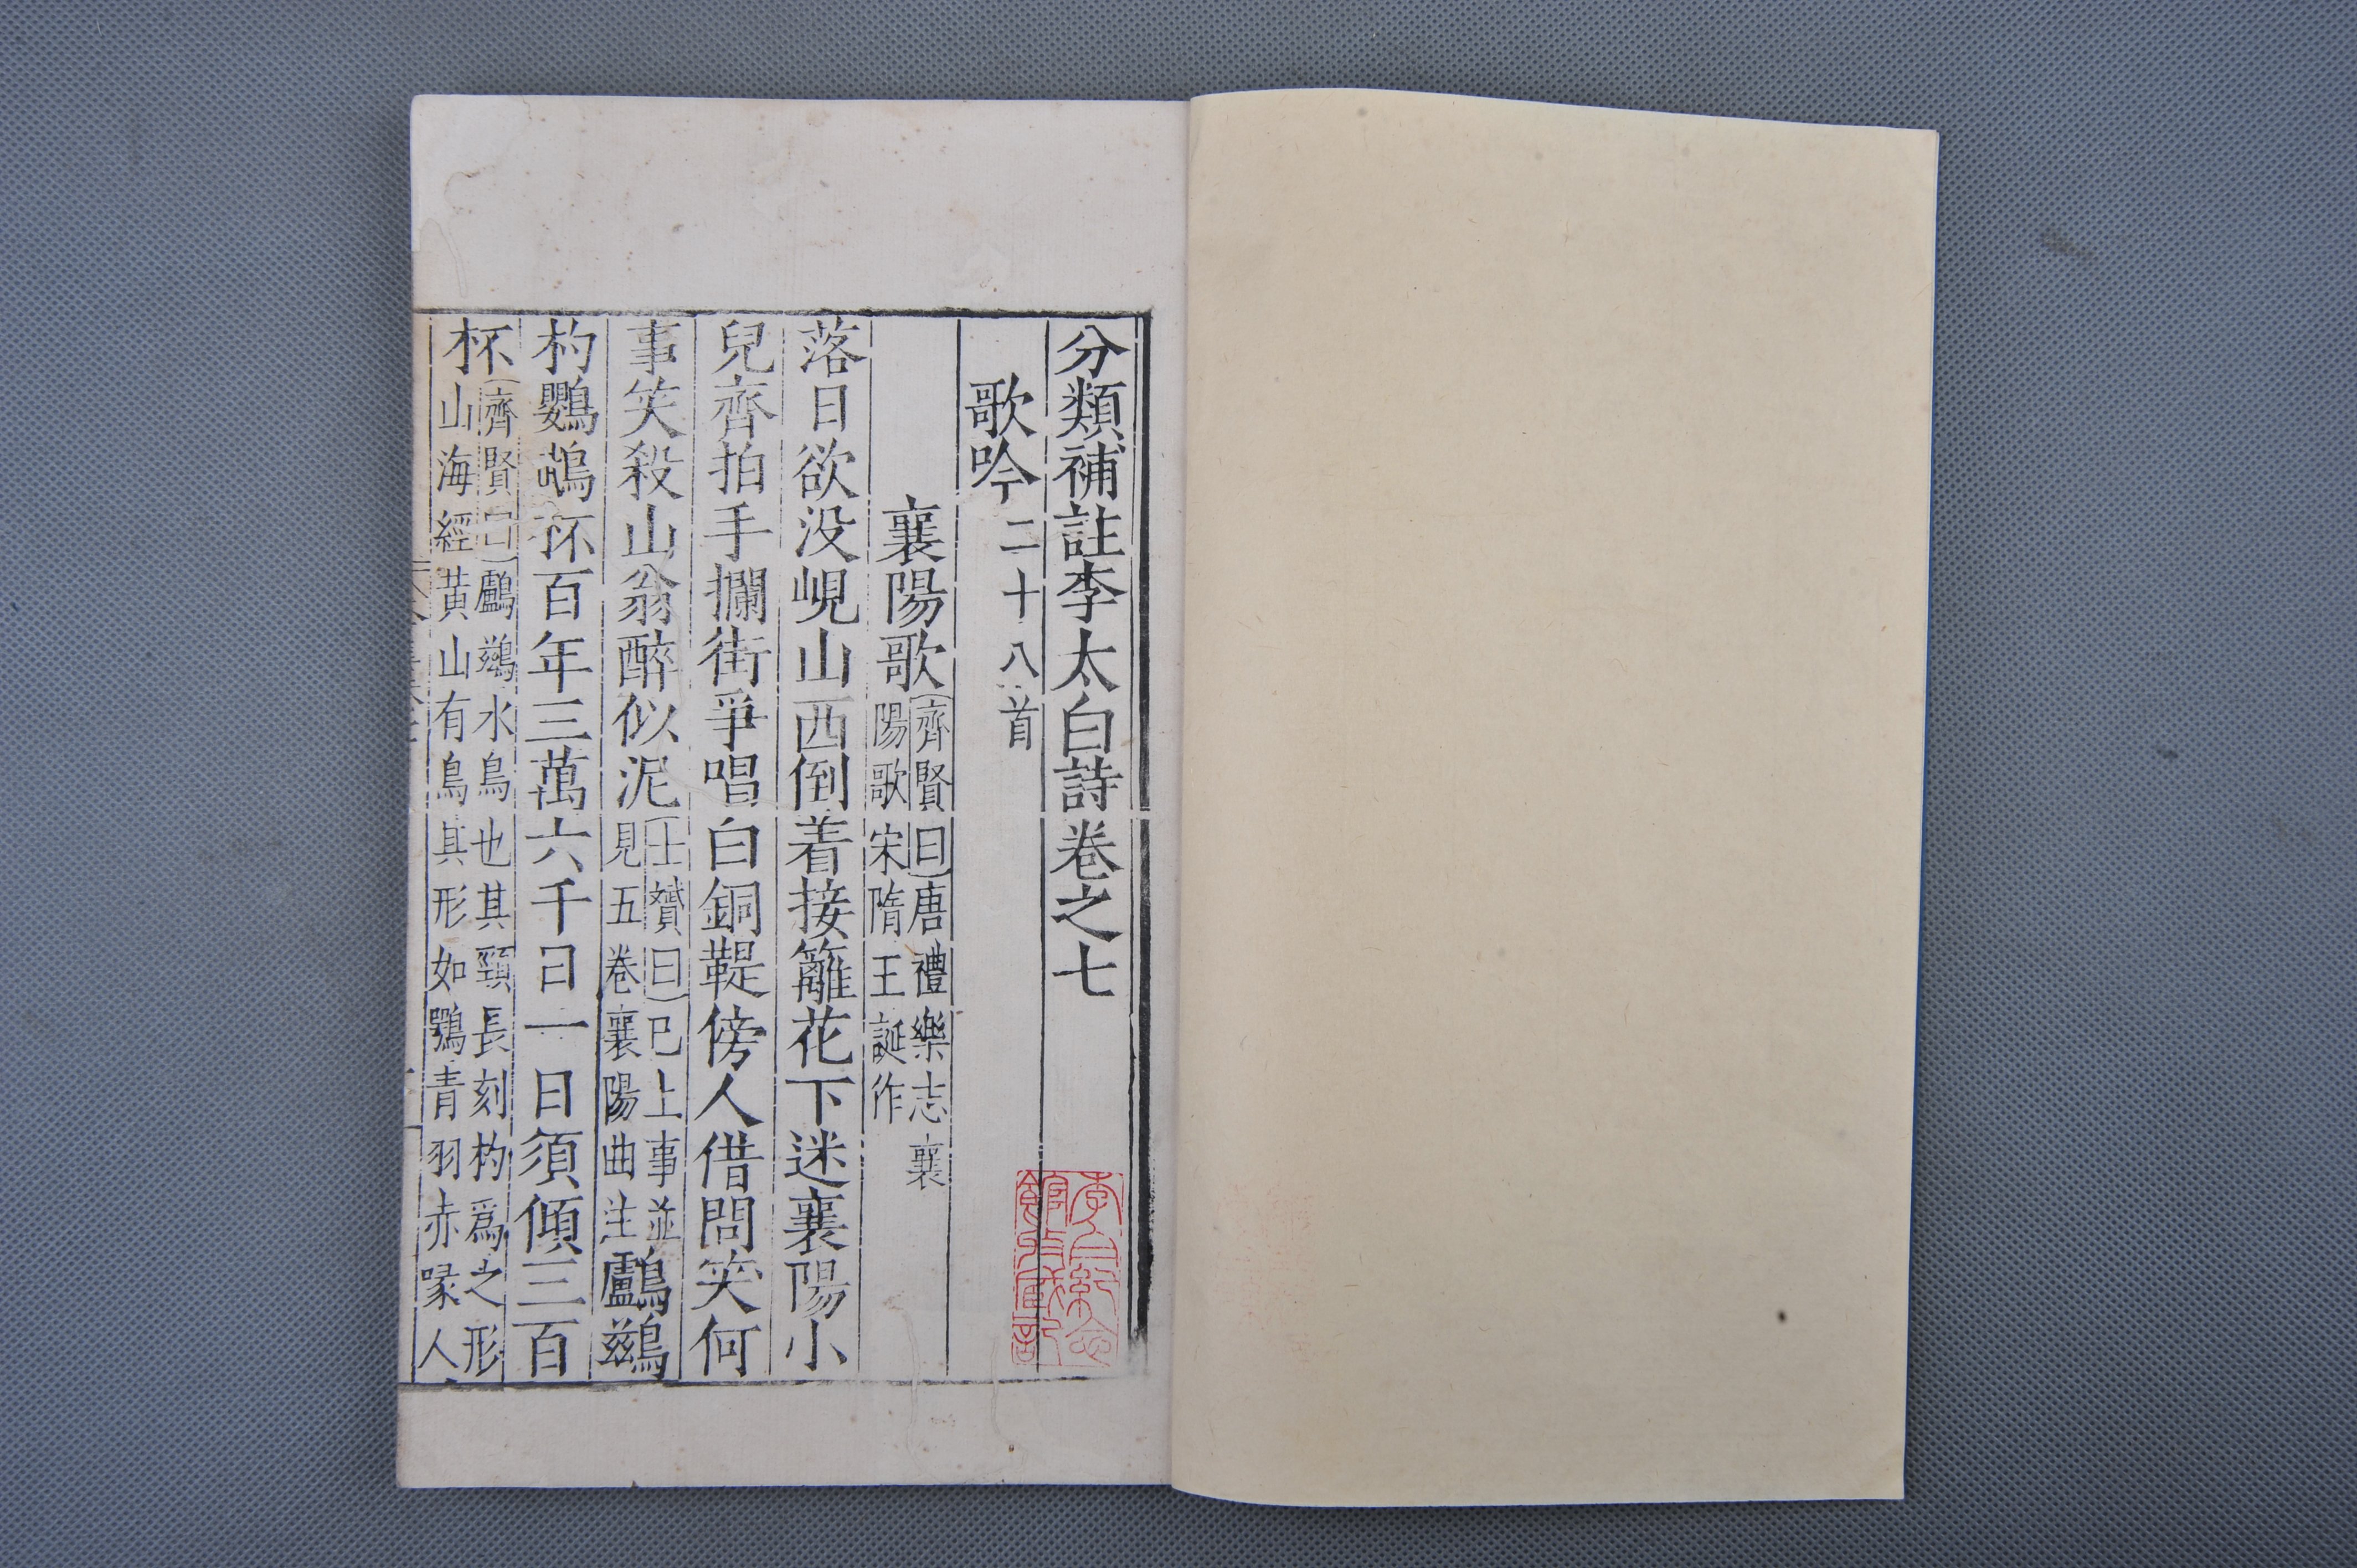 分類補註李太白詩卷之七
歌吟二十八首
襄陽歌(齊賢曰)唐禮樂志襄
陽歌宋隋王誕作
落日欲没峴山西倒着接籬花下迷襄陽小
兒齊拍手攔街爭唱白銅鞮傍人借問笑何
事笑殺山翁醉似泥(士贇曰)已上事並
見五卷襄陽曲註鸕鷀
杓鸚鵡杯百年三萬六千日一日須傾三百
杯(齊賢曰)鸕鷀水鳥也其頸長刻杓爲之形
山海經黃山有鳥其形如鴞青羽赤喙人
李白紀念
館收藏記